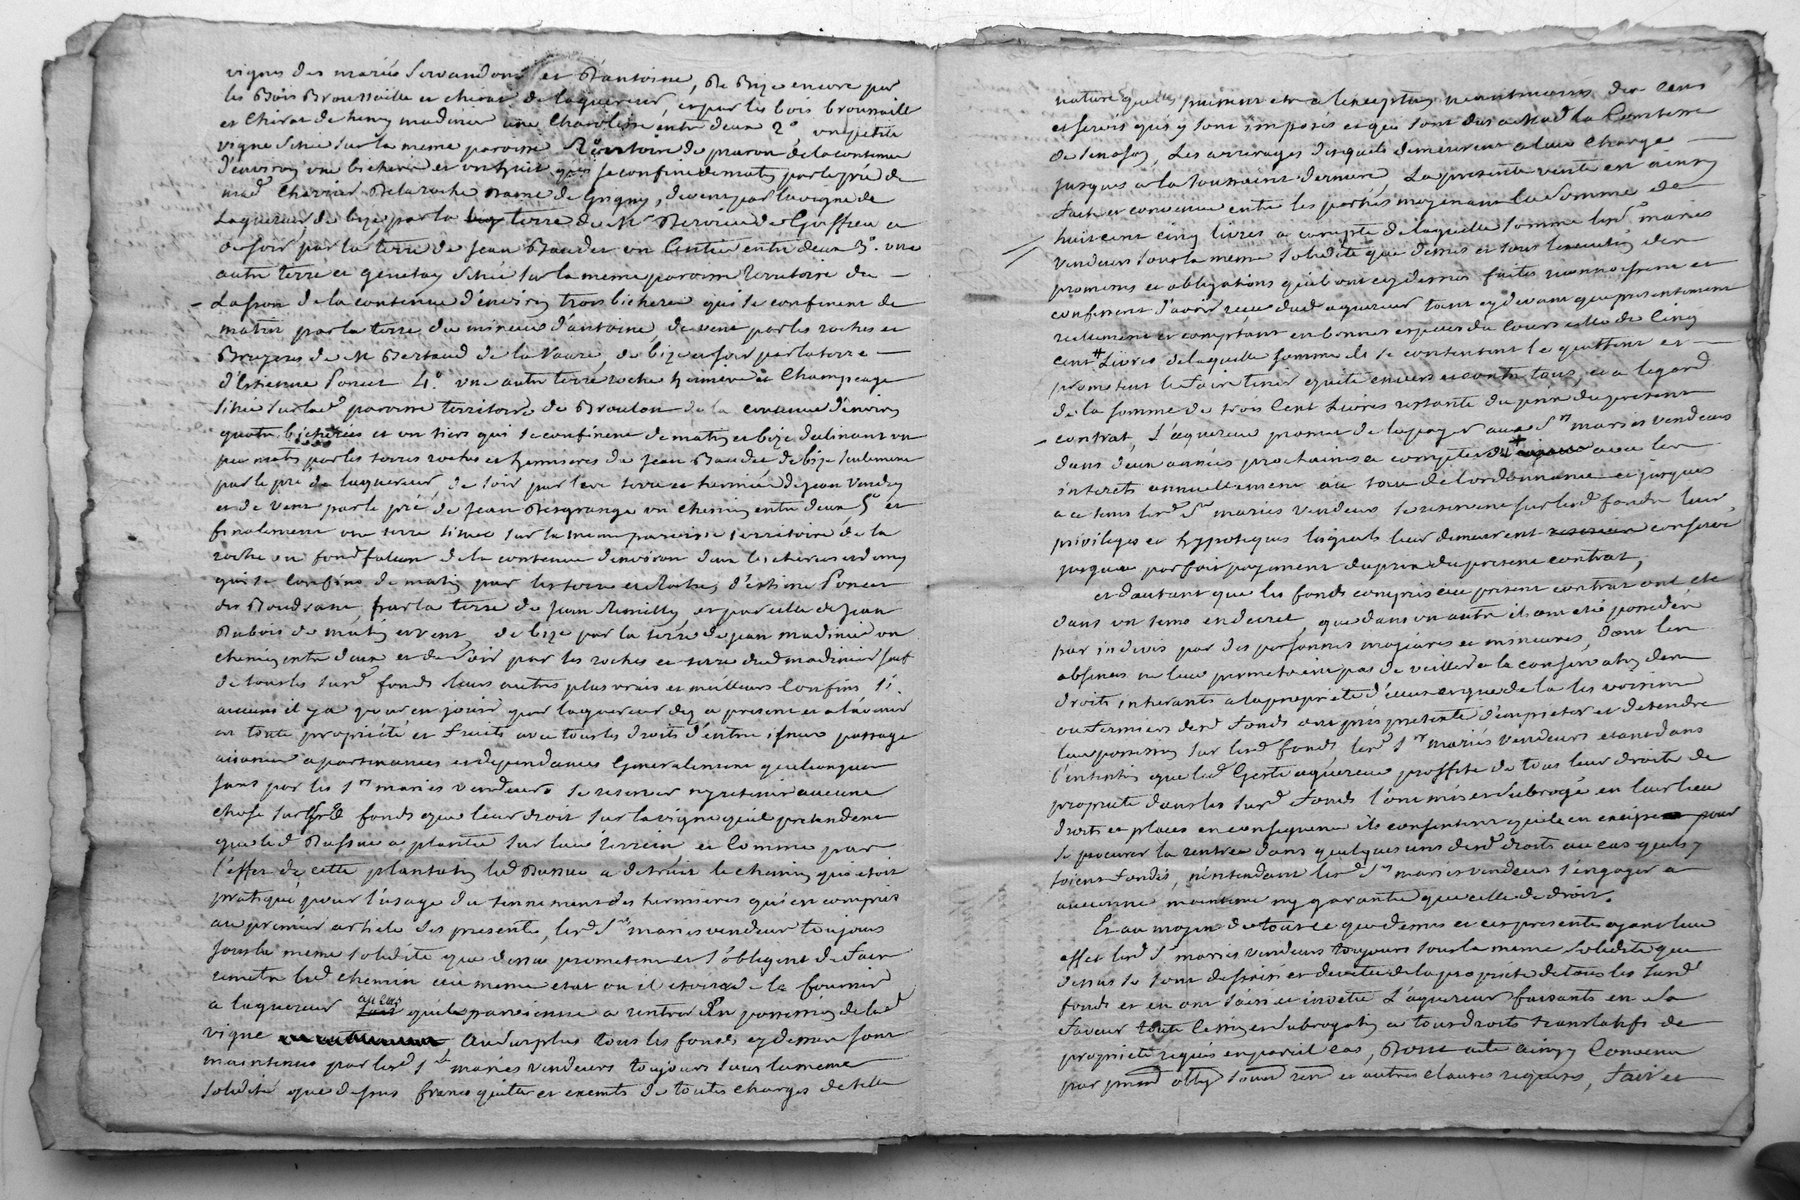 vignes des mariés Servandon et d'antoine, De Bize encore par
les Bois Broussaille et chirat de laquereur, et par les bois broussaille
et Chirat de henry madinier une Charoliere entre deux 2° une petite
vigne Scitué sur la meme paroisse territoire de de la contenue
d'environ une bicheree et se confine de matin par le pré de
mad.e Charrier Delaroche Dame de Grigny, de vent par la vigne de
Laquereur, de bize par la terre de M.r de Goiffieu et
de soir par la terre de Jean Baudet un entre deux 3° une
autre terre et genetay scitué sur la meme paroisse territoire du
Lasson de la contenue d'environ trois bicherées qui se confinent de
matin par la terre du mineur d'antoine de vent par les roches et
Bruyeres de M Bertaud de la Vaure, de bize et soir par la terre
d'Estienne Poncet 4° une autre terre roche hermiere et Champeage
Scitué sur lad.e paroisse territoire de Broulon de la contenue d'environ
quatre bicherées et un tiers qui se confinent de matin et bize declinant un
peu matin par les terres roches et hermieres de Jean Baudet de bize seulement
par le pré de laquereur, de soir par terre et hermiere de Jean
et de vent par le pré de Jean Desgrange un chemin entre deux 5° et
finalement une terre scitué sur la meme paroisse territoire de la
roche ou de la contenue d'environ deux bicherées et demy
qui se confine de matin par les terre et roches d'estienne Poncet
dit Boudrane, par la terre de Jean Remilly et par celle de Jean
Dubois de matin et vent, de bize par la terre de Jean madinier un
chemin entre deux et de soir par les roches et terre dud madinier sauf
de tous les surd. fonds leurs autres plus vrais et meilleurs Confins si
aucuns il y a pour en jouir par laquereur dez a present et a l'avenir
en toute proprieté et fruits avec tous les droits d'entrée issues passage
aisances apartenances et dependances Generalement quelconques
sans par les S.rs mariés vendeurs se reserver ny retenir aucune
chose sur lesd. fonds que leur droit sur la vigne qu'il pretendent
que led Bussue a plantée sur leur terrein et Comme par
l'effet de cette plantation led Bussue a detruit le chemin qui etoit
pratiqué pour l'usage du tennement des hermieres qui est compris
au premier article des presentes, lesd. S.rs mariés vendeur toujours
sous la meme solidité que dessus promettent et s'obligent de faire
remettre led chemin au meme etat ou il etoit et de le fournir
a laquereur au cas qu'ils parviennent a rentrer En possession de lad.
vigne Au surplus tous les fonds cy dessus sont
maintenus par lesd. S.rs mariés vendeurs toujours sous la meme
solidité que dessus francs quittes et exempts de toutes charges de telle
nature quelles puissent etre a lexception neantmoins des Cens
et servis qui y sont imposés et qui sont dus a Mad.e la Comtesse
de Senosan, Les arrerages desquels demeureront a leur Charge
jusques a la Toussaint derniere La presente vente est ainsy
faite et convenue entre les parties moyenant la Somme de
huit cent cinq livres a compte de laquelle somme lesd. mariés
vendeurs sous la meme solidité que dessus et sous l'execution des
promesses et obligations qu'ils ont cy dessus faites reconnoissent et
confessent d'avoir reçu dud aquereur tant cy devant que presentement
reelement et comptant en bonnes especes du Cours celle de Cinq
cent Livres de laquelle somme ils se contentent le quittent et
promettent le faire tenir quitte envers et contre tous, et a legard
de la somme de trois Cent Livres restante du prix du present
contrat, L'aquereur promet de la payer aux d. S.rs mariés vendeurs
dans deux années prochaines a compter avec les
interets annuellement au taux de lordonnance et jusques
a ce tems lesd. S.rs mariés vendeurs se reservent sur lesd. fonds leur
privileges et hypoteques lesquels leur demeurent conservé
jusqu'au parfait payement du prix du present contrat,
et d'autant que les fonds compris au present contrat ont eté
dans un tems en decret, que dans un autre ils ont eté possedés
par indivis par des personnes majeures et mineures, dont les
absences ne leur permetoient pas de veiller a la conservation des
droits inherants a la proprieté d'iceux et que de la les voisins
ou fermiers desd. fonds ont pris pretexte d'empieter et detendre
leur possession sur lesd. fonds, lesd. S.rs mariés vendeurs etant dans
l'intention que led. Gerte aquereur proffite de tous leur droits de
proprieté dans les surd. fonds l'ont mis et subrogé en leur lieu
droits et places en consequence ils consentent qu'ils en pour
se procurer la rentrée dans quelques uns desd. droits au cas quels y
soient fondés, n'entendant lesd. S.rs mariés vendeurs s'engager a
aucunne maintenue ny garantie que celle de droit.
Et au moyen de tout ce que dessus et ces presentes ayant leur
effet lesd. S. mariés vendeurs toujours sous la meme solidité que
dessus se sont dessaisi et devetu de la proprieté de tous les surd.
fonds et en ont saisi et investu L'aquereur faisants en sa
faveur toute Cession et subrogation a tous droits translatifs de
proprieté requis en pareil cas, Dont acte ainsy Convenu
par prom. oblig. soum. ren. et autres clauses requises, Fait et